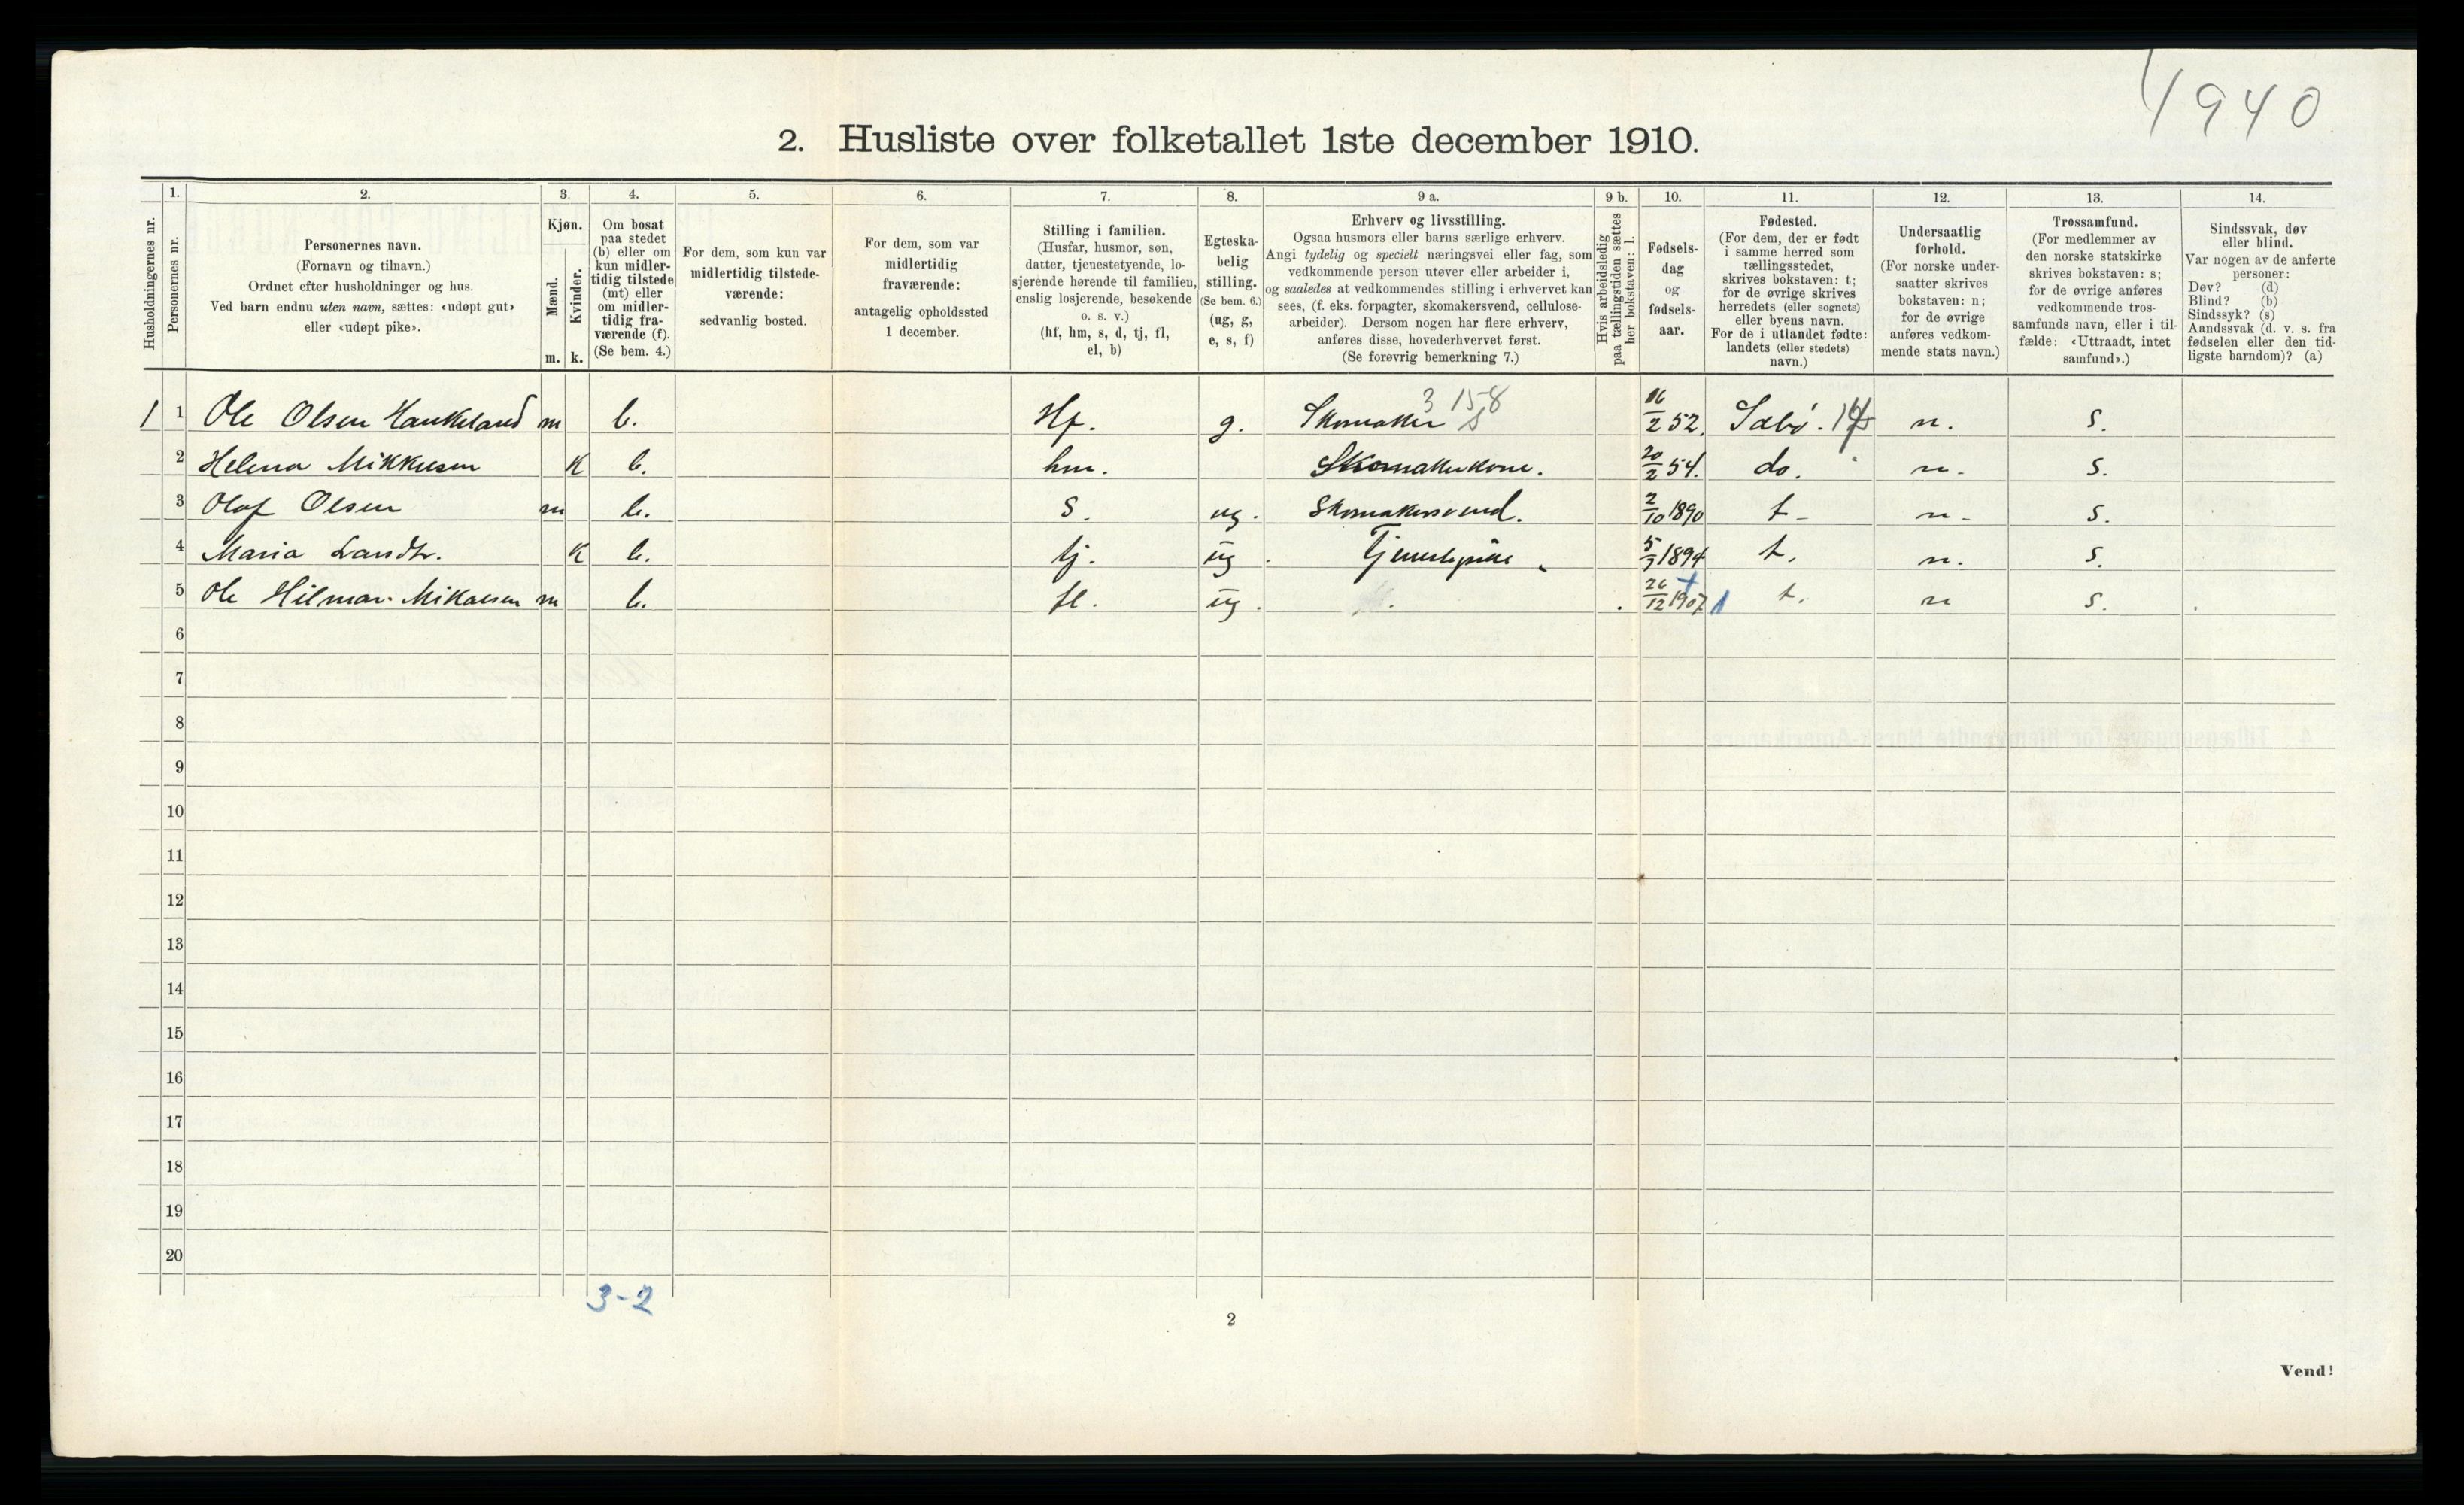 4940
2. Husliste over folketallet 1ste december 1910.
Husholdningernes nr.
1.
Personernes nr.
2.
Personernes navn.
(Fornavn og tilnavn.)
Ordnet efter husholdninger og hus.
Ved barn endnu uten navn, sættes: «udøpt gut»
eller «udøpt pike».
3.
Kjøn.
Mænd.
Kvinder.
m. k.
4.
Om bosat
paa stedet
(b) eller om
kun midler-
tidig tilstede
(mt) eller
om midler-
tidig fra-
værende (f).
(Se bem. 4.)
5.
For dem, som kun var
midlertidig tilstede-
værende:
sedvanlig bosted.
6.
For dem, som var
midlertidig
fraværende:
antagelig opholdssted
1 december.
7.
Stilling i familien.
(Husfar, husmor, søn,
datter, tjenestetyende, lo-
sjerende hørende til familien,
enslig losjerende, besøkende
o. s. v.)
(hf, hm, s, d, tj, fl,
el, b)
8.
Egteska-
belig
stilling.
(Se bem. 6.)
(ug, g,
e, s, f)
9 a.
Erhverv og livsstilling.
Ogsaa husmors eller barns særlige erhverv.
Angi tydelig og specielt næringsvei eller fag, som
vedkommende person utøver eller arbeider i,
og saaledes at vedkommendes stilling i erhvervet kan
sees, (f. eks. forpagter, skomakersvend, cellulose-
arbeider). Dersom nogen har flere erhverv,
anføres disse, hovederhvervet først.
(Se forøvrig bemerkning 7.)
9 b.
Hvis arbeidsledig
paa tællingstiden sættes
her bokstaven: l.
10.
Fødsels-
dag
og
fødsels-
aar.
11.
Fødested.
(For dem, der er født
i samme herred som
tællingsstedet,
skrives bokstaven: t;
for de øvrige skrives
herredets (eller sognets)
eller byens navn.
For de i utlandet fødte:
landets (eller stedets)
navn.)
12.
Undersaatlig
forhold.
(For norske under-
saatter skrives
bokstaven: n;
for de øvrige
anføres vedkom-
mende stats navn.)
13.
Trossamfund.
(For medlemmer av
den norske statskirke
skrives bokstaven: s;
for de øvrige anføres
vedkommende tros-
samfunds navn, eller i til-
fælde: «Uttraadt, intet
samfund».)
14.
Sindssvak, døv
eller blind.
Var nogen av de anførte
personer:
Døv? (d)
Blind? (b)
Sindssyk? (s)
Aandssvak (d. v. s. fra
fødselen eller den tid-
ligste barndom)? (a)
3 158
1 1 Ole Olsen Haukeland m b. Hf. g. Skomaker S 16/2 52. Sæbø. n. s.
2 Helena Mikkelsen K b. hm. Skomakerkone. 20/2 54. do. n. s.
3 Olaf Olsen m b. s. ug. Skomakersvend. 2/10 1890 t. n. s.
4 Maria Landtr. K b. tj. ug. Tjenestepike 1894 t. n. s.
5 Ole Hilmar Mikalsen m b. fl. ug. 26/12 1907 1 t. n s.
6
7
8
9
10
11
12
13
14
15
16
17
18
19
20
3-2
2
Vend!